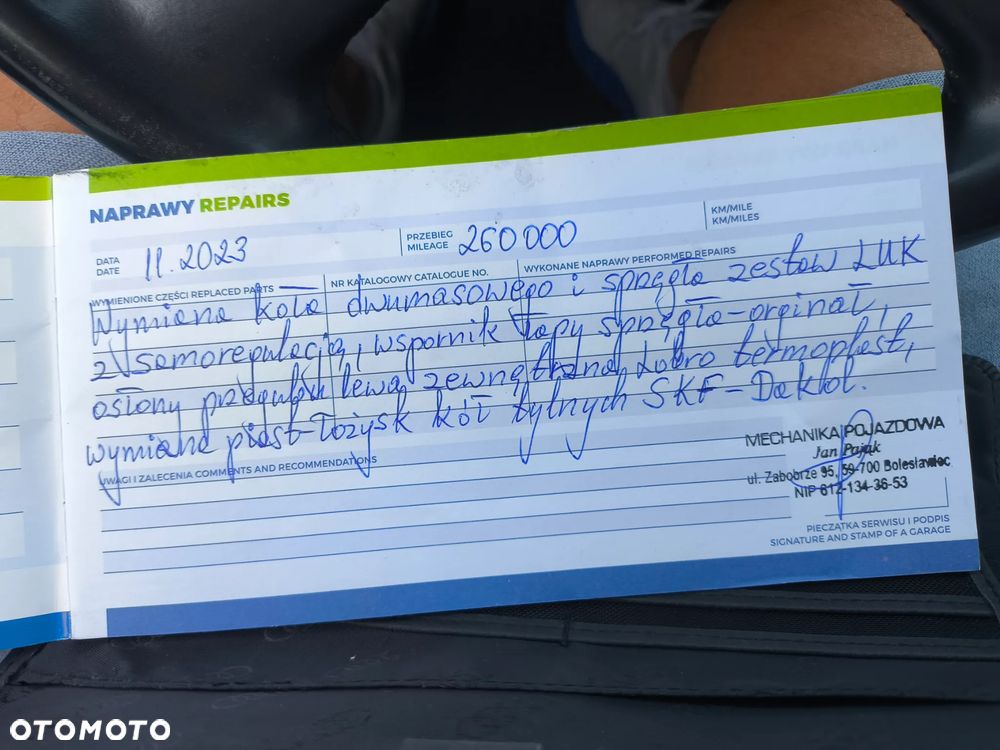 NAPRAWY REPAIRS
DATA
DATE
11.2023
PRZEBIEG
MILEAGE
260000
KM/MILE
KM/MILES
WYMIENIONE CZĘŚCI REPLACED PARTS
NR KATALOGOWY CATALOGUE NO.
WYKONANE NAPRAWY PERFORMED REPAIRS
Wymiana koła dwumasowego i sprzęgła zestaw LUK
z samoregulacją, wspornik łapy sprzęgła-orginał,
osłony przegubów lewa zewnętrzna Lobro termoplast,
wymiana piast-łożysk kół tylnych SKF-Dakol.
UWAGI I ZALECENIA COMMENTS AND RECOMMENDATIONS
MECHANIKA POJAZDOWA
Jan Pająk
ul. Zabobrze 95, 59-700 Bolesławiec
NIP 612-134-36-53
PIECZĄTKA SERWISU I PODPIS
SIGNATURE AND STAMP OF A GARAGE
OTOMOTO